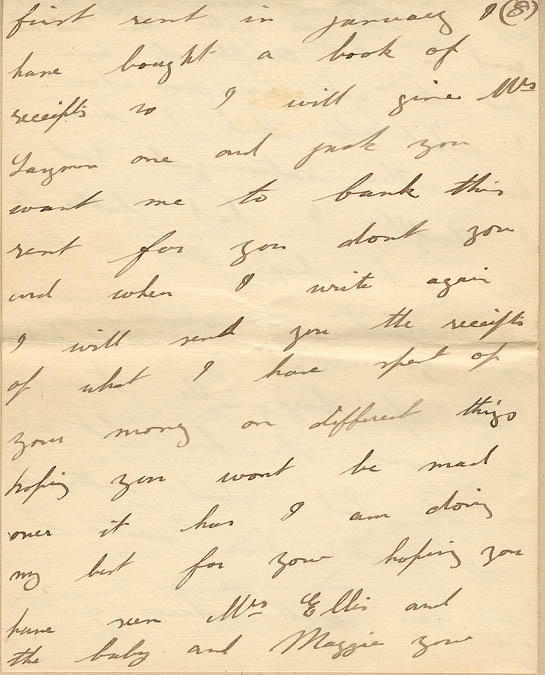 first rent in january I (8)
have bought a book of
receipts so I will give Mrs
one and jack you
want me to bank this
rent for you dont you
and when I write again
I will send you the receipts
of what I have spent of
your money on different things
hoping you wont be mad
over it has I am doing
my best for you hoping you
have seen Mrs Ellis and
the baby and Maggie your